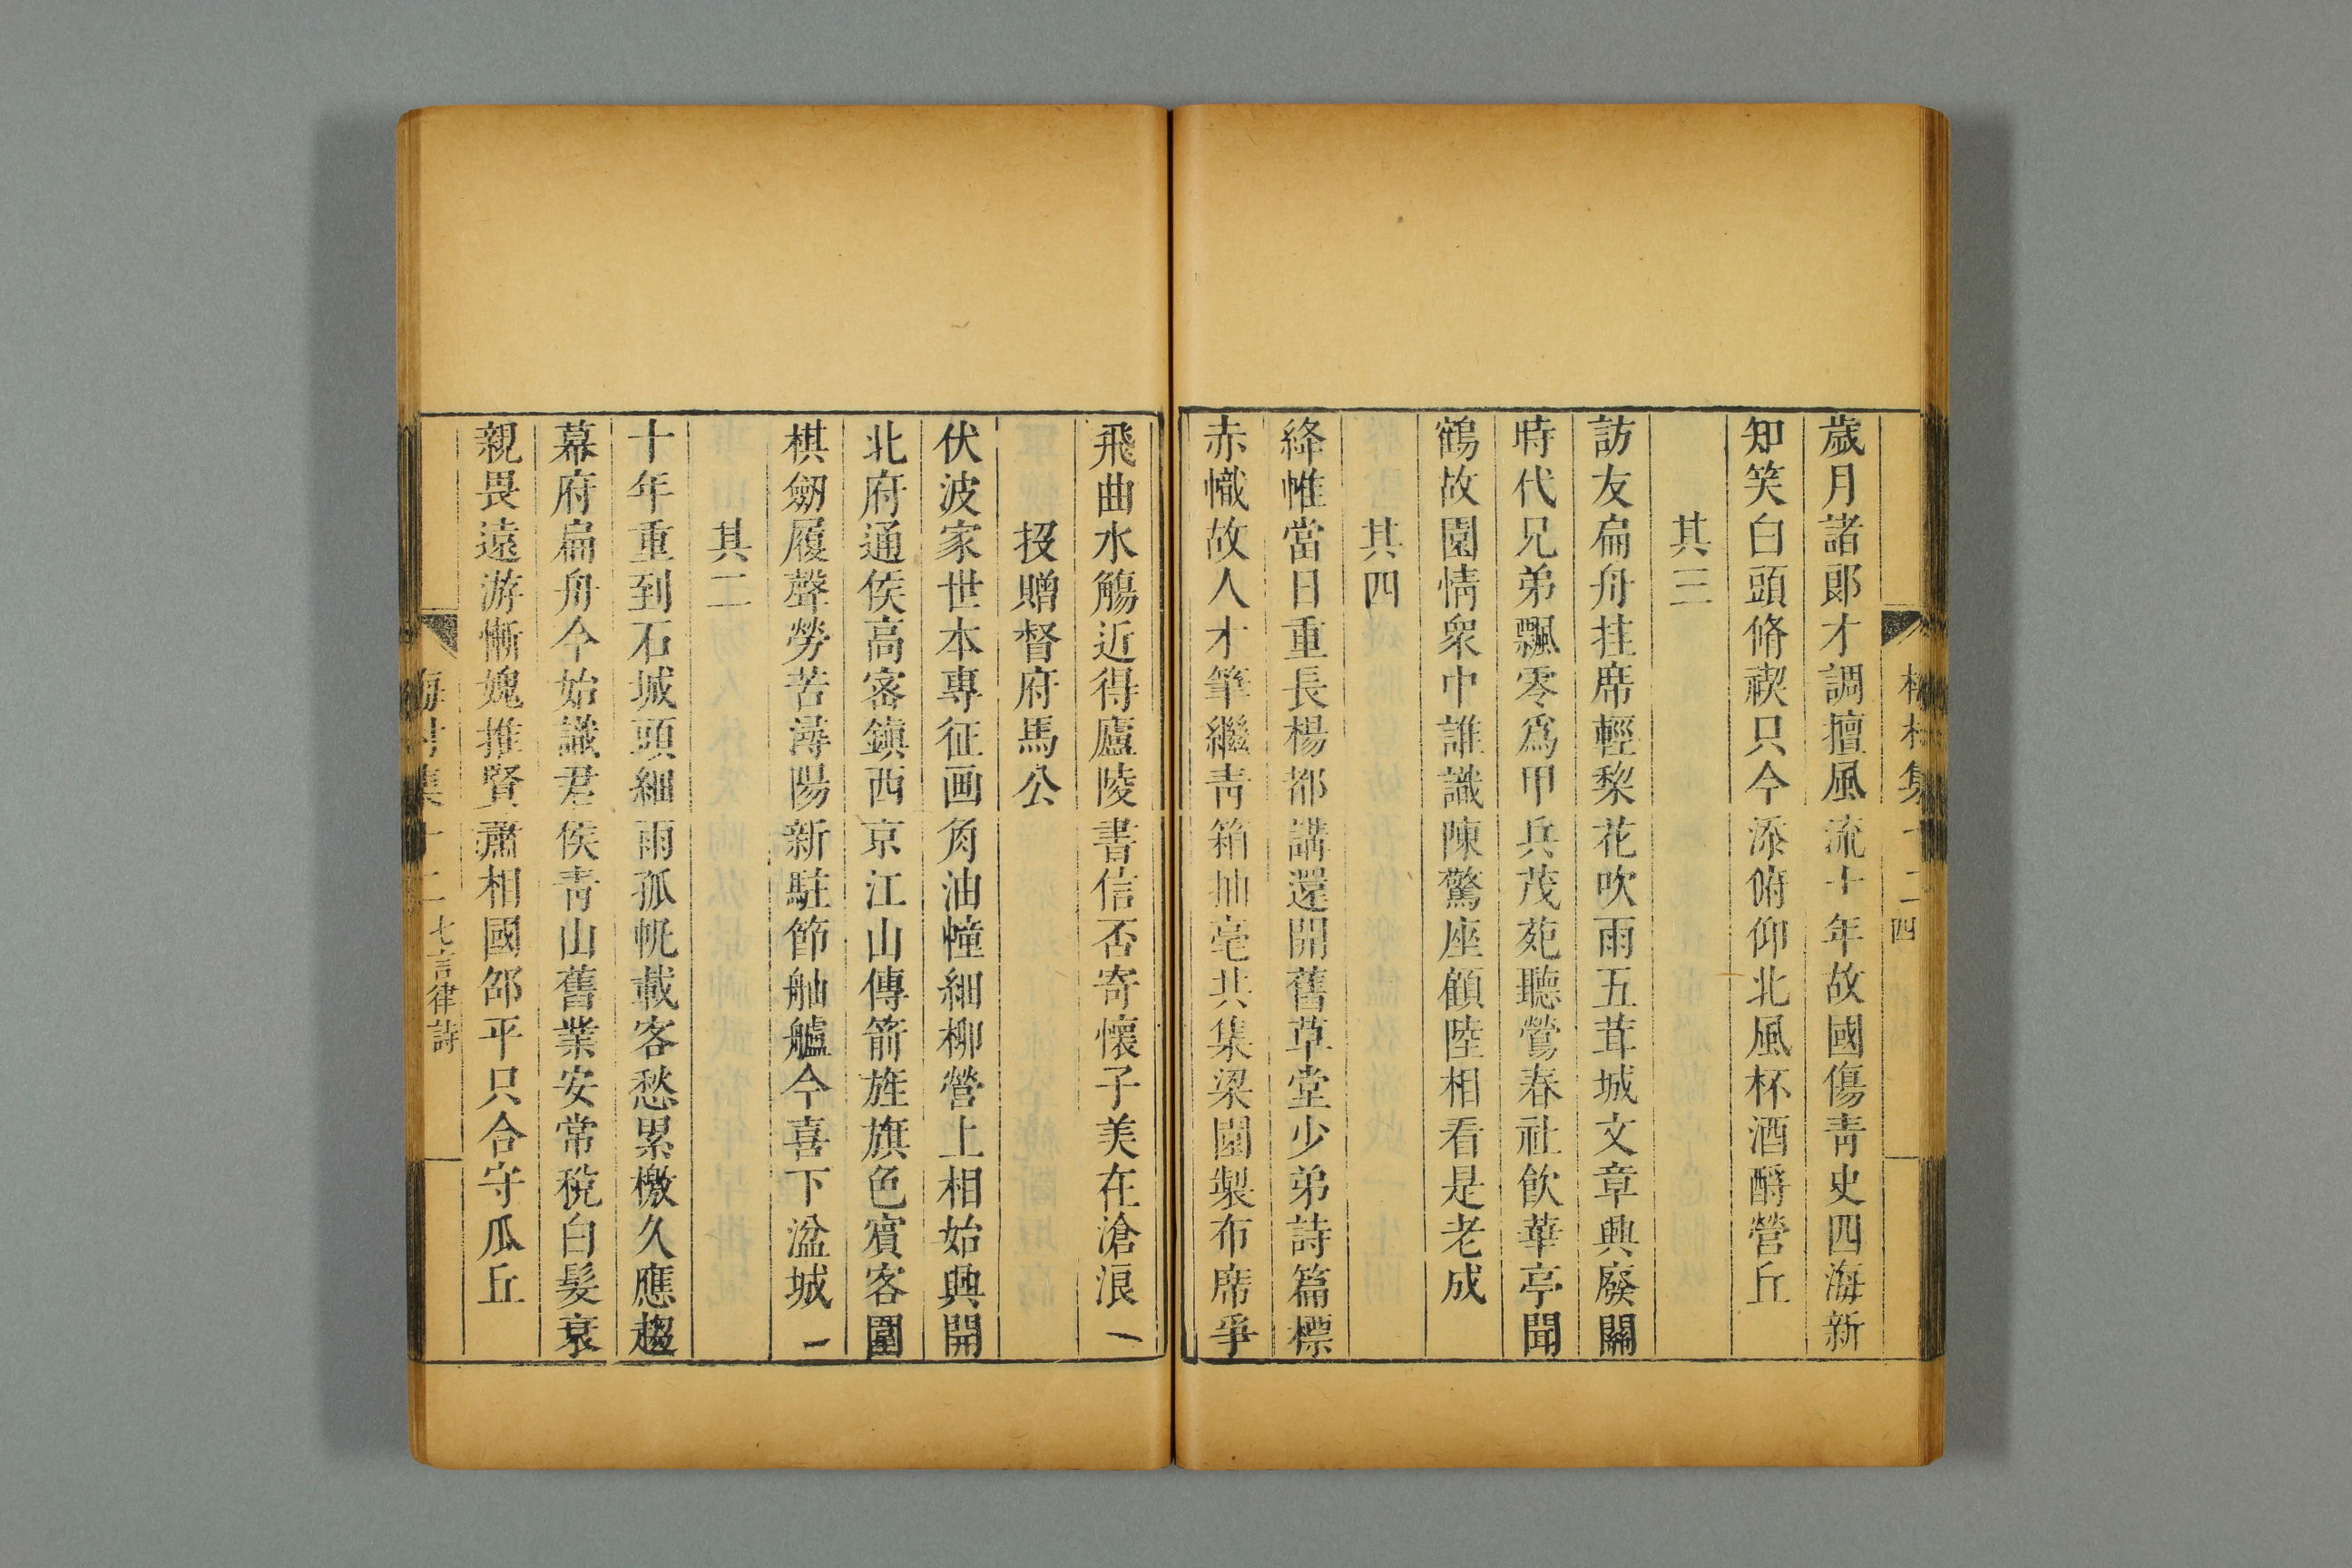 梅村集 十二 四
歲月諸郎才調擅風流十年故國傷青史四海新
知笑白頭脩禊只今添俯仰北風杯酒酹營丘
其三
訪友扁舟挂席輕棃花吹雨五茸城文章興廢關
時代兄弟飄零爲甲兵茂苑聽鶯春社飲華亭聞
鶴故園情衆中誰識陳驚座顧陸相看是老成
其四
絳帷當日重長楊都講還開舊草堂少弟詩篇標
赤幟故人才筆繼青箱抽毫共集梁園製布席爭
飛曲水觴近得廬陵書信否寄懷子美在滄浪
投贈督府馬公
伏波家世本專征画角油幢細柳營上相始興開
北府通侯高密鎭西京江山傳箭旌旗色賓客圍
棋劒履聲勞苦潯陽新駐節舳艫今喜下湓城
其二
十年重到石城頭細雨孤帆載客愁累檄久應趨
幕府扁舟今始識君侯青山舊業安常稅白髮衰
親畏遠游慚媿推賢蕭相國邵平只合守瓜丘
梅村集 十二 七言律詩